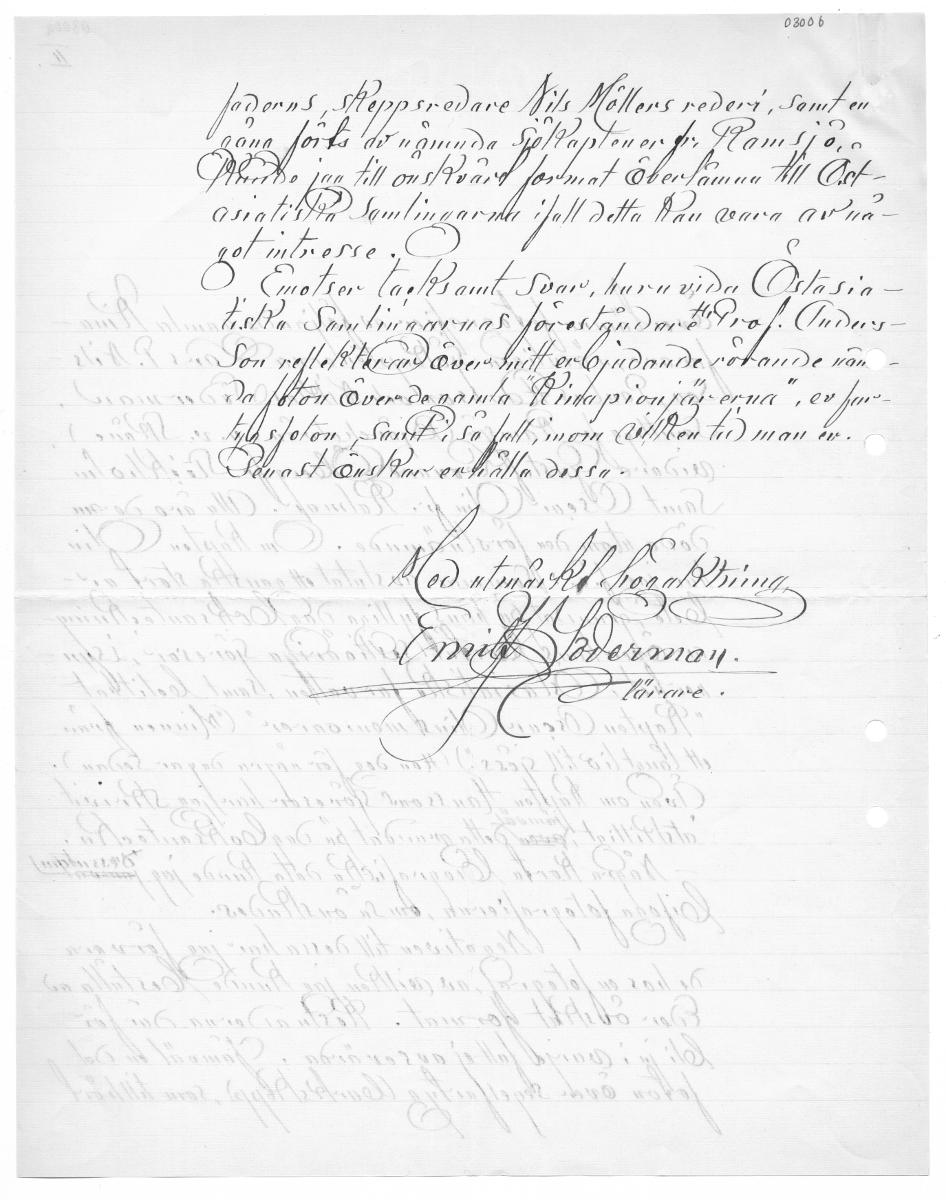 0300b
faderns, skeppsredare Nils Möllers rederi, samt en
gång förts av nämnda sjökaptener fr. Ramsjö,
Kunde jag till önskvärd format överlämna till Öst-
asiatiska Samlingarna ifall detta kan vara av nå-
got intresse.
Emotser tacksamt svar, huruvida Östasia-
tiska Samlingarnas föreståndare Prof. Anders-
son reflekterar över mitt erbjudande rörande näm-
da foton över de gamla "Kinapionjärerna", ev far-
tygsfoton, samt i så fall, inom vilken tid man er.
Senast önskar erhålla dessa.
Med utmärkt högaktning
Emil Söderman.
lärare.